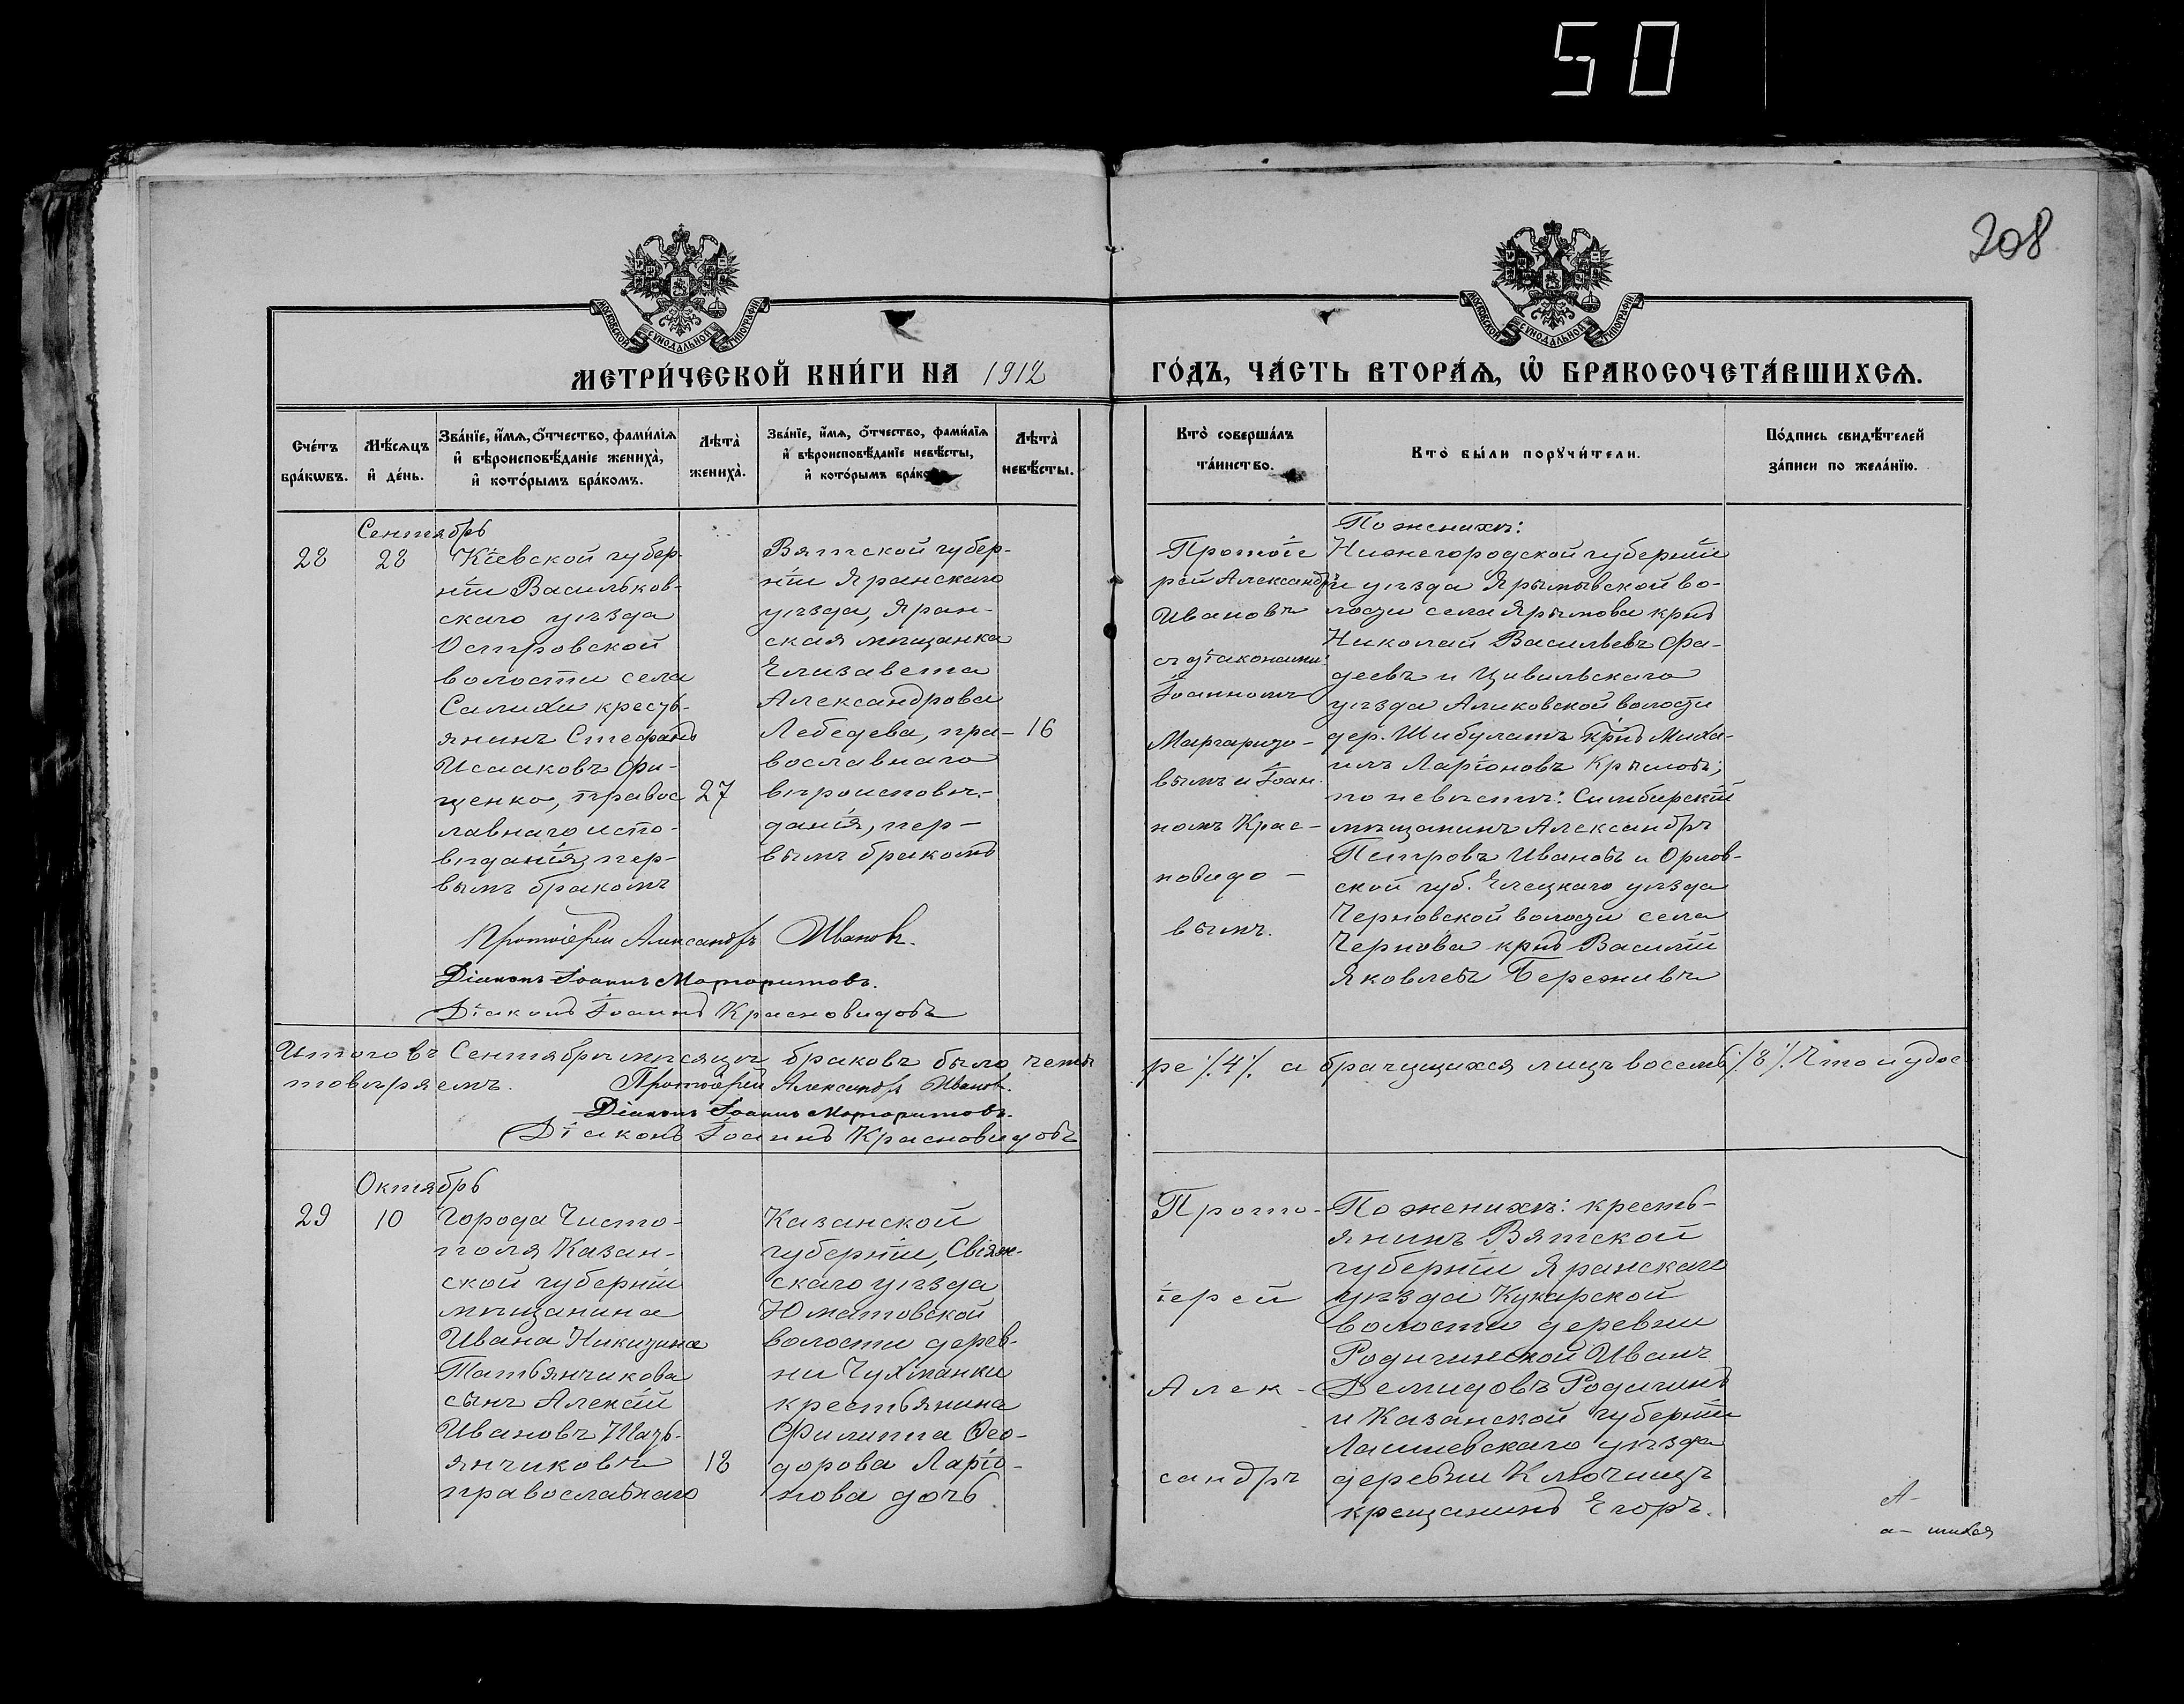 50
208
МОСКОВСКОЙ СѴНОДАЛЬНОЙ ТИПОГРАФІИ
МОСКОВСКОЙ СѴНОДАЛЬНОЙ ТИПОГРАФІИ
МЕТРИ́ЧЕСКОЙ КНИ́ГИ НА 1912
ГО́ДЪ, ЧА́СТЬ ВТОРА́Ѧ, Ѽ БРАКОСОЧЕТА́ВШИХСѦ.
Сче́тъ бра́кѡвъ.
Мѣ́сяцъ и҆ де́нь.
Зва́нїе, и҆́мѧ, ѻ҆́тчество, фами́лїѧ и҆ вѣроисповѣ́данїе жениха̀, и҆ кото́рымъ бра́комъ.
Лѣта̀ жениха̀.
Зва́нїе, и҆́мѧ, ѻ҆́тчество, фами́лїѧ и҆ вѣроисповѣ́данїе невѣ́сты, и҆ кото́рымъ
Лѣта̀ невѣ́сты.
Кто̀ соверша́лъ та́инство.
Кто̀ бы́ли порꙋчи́тели.
По́дпись свидѣ́телей за́писи по жела́нїю.
Сентябрь
28
28
Кіевской губер-
ніи Васильков-
скаго уѣзда
Островской
волости села
Салихи кресть-
янинъ Стефанъ
Исааковъ Фи-
щенко, правос
лавнаго испо-
вѣданія, пер-
вымъ бракомъ
27
Вятской губер-
ніи Яранскаго
уѣзда, Яран-
ская мѣщанка
Елизавета
Александрова
Лебедева, пра-
вославнаго
вѣроисповѣ-
данія, пер-
вымъ бракомъ
16
Протоіе
рей Александръ
Ивановъ
съ діаконами:
Іоанномъ
Маргарито-
вымъ и Іоан-
номъ Крас-
новидо-
вымъ.
По женихѣ:
Нижегородской губерніи
и уѣзда Ярымовской во-
лости села Ярымова крнъ
Николай Васильевъ Фа-
деевъ и Цивильскаго
уѣзда Аликовской волости
дер. Шибулатъ крнъ Миха-
илъ Ларіоновъ Крыловъ;
по невѣстѣ: Симбирскій
мѣщанинъ Александръ
Петровъ Ивановъ и Орлов-
ской губ. Елецкаго уѣзда
Черновской волости села
Чернова крнъ Василій
Яковлевъ Бережинъ
Протоіерей Александръ Ивановъ.
Діаконъ Іоаннъ Маргаритовъ.
Діаконъ Іоаннъ Красновидовъ
Итого въ Сентябрѣ мѣсяцѣ браковъ было четы
ре ⁒4⁒ а брачущихся лицъ восемь ⁒8⁒ Что и удос-
товѣряемъ. Протоіерей Александръ Ивановъ.
Діаконъ Іоаннъ Маргаритовъ.
Діаконъ Іоаннъ Красновидовъ
Октябрь
29
10
Города Чисто-
поля Казан-
ской губерніи
мѣщанина
Ивана Никитина
Татьянчикова
сынъ Алексѣй
Ивановъ Тать-
янчиковъ
православнаго
18
Казанской
губерніи, Свіяж-
скаго уѣзда
Юматовской
волости дерев-
ни Чухманки
крестьянина
Филиппа Ѳео-
дорова Ларіо-
нова дочь
Прото-
іерей
Алек-
сандръ
По женихѣ: кресть-
янинъ Вятской
губерніи Яранскаго
уѣзда Кукарской
волости деревни
Родигинской Иванъ
Демидовъ Родигинъ
и Казанской губерніи
Лаишевскаго уѣзда
деревни Ключищъ
крещанинъ Егоръ.
А-
а- шихся